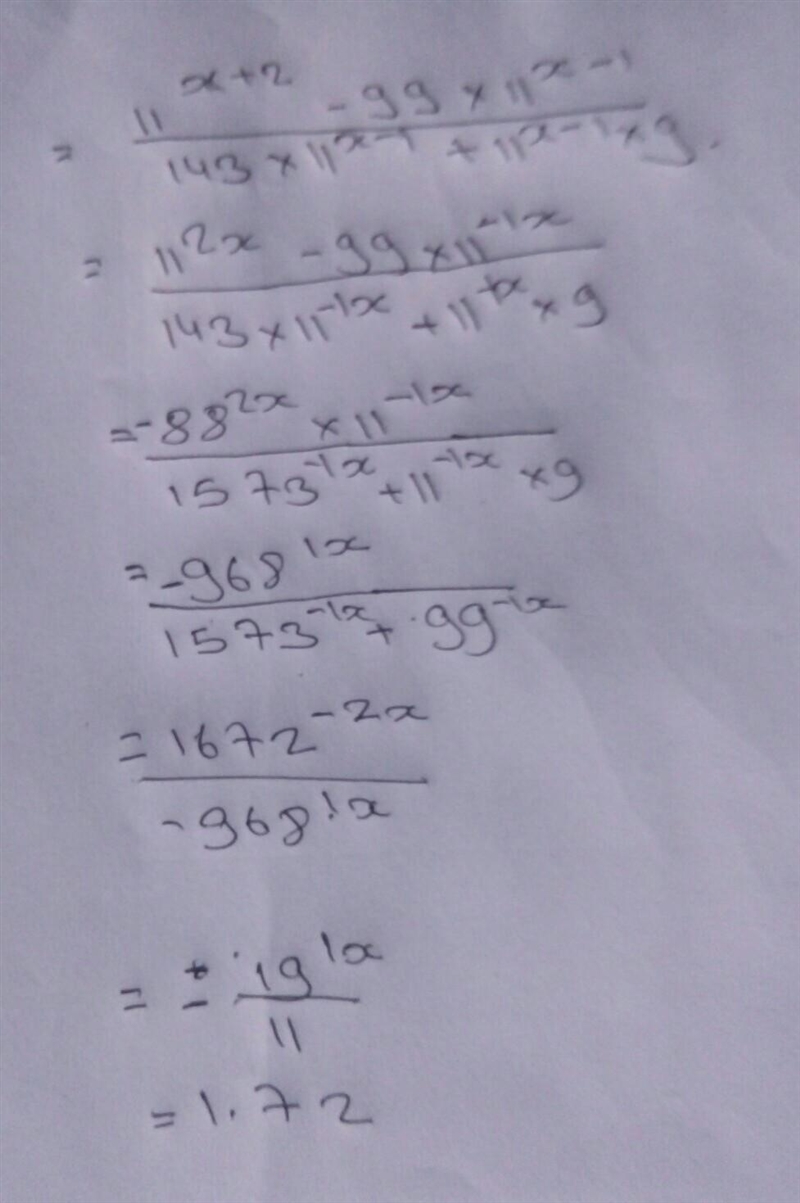 = 11^(x+2) - 99 × 11^(x-1)
143 × 11^(x-1) + 11^(x-1) × 9.
= 11^(2x) - 99 × 11^(-1x)
143 × 11^(-1x) + 11^(-1x) × 9
= -88^(2x) × 11^(-1x)
1573^(-1x) + 11^(-1x) × 9
= -968^(1x)
1573^(-1x) + 99^(-1x)
= 1672^(-2x)
-968^(1x)
= ± 19^(1x)
11
= 1.72